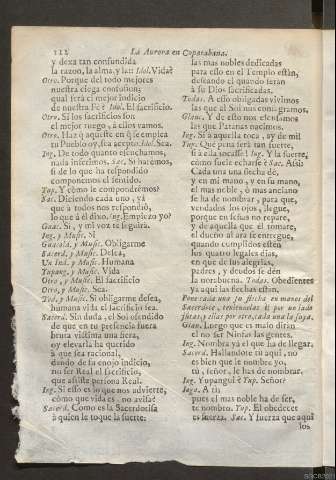 112 La Aurora en Copacabana.
y dexa tan confundida
la razon, la alma, y la: Idol. Vida?
Otro. Porque del todo mejores
nuestra ciega confusion;
qual será el mejor indicio
de nuestra Fe? Idol. El sacrificio.
Otro. Si los sacrificios son
el mejor ruego, á ellos vamos.
Otro. Haz q̃ aqueste en q̃ se emplea
tu Pueblo oy, sea acepto. Idol. Sea.
Ing. De todo quanto escuchamos,
nada inferimos. Sac. Si harémos,
si de lo que ha respondido
componemos el sentido.
Yup. Y cómo le compondrémos?
Sac. Diciendo cada uno, ya
que á todos nos respondió,
lo que á el dixo. Ing. Empiezo yo?
Guac. Si, y mi voz te seguirá.
Ing. y Music. Si
Guacol. y Music. Obligarme
Sacerd. y Music. Desea,
Un Ind. y Music. Humana
Yupang. y Music. Vida
Otro, y Music. El sacrificio
Otro, y Music. Sea.
Tod. y Music. Si obligarme desea,
humana vida el sacrificio sea.
Sacerd. Sin duda, el Sol ofendido
de que en tu presencia fuera
bruta victima una fiera,
oy elevarla ha querido
á que sea racional,
dando de su enojo indicio,
no ser Real el sacrificio,
que assiste persona Real.
Ing. Si esso es lo que nos advierte,
cómo que vida es, no avisa?
Sacerd. Como es la Sacerdotisa
á quien le toque la suerte:
las mas nobles dedicadas
para esso en el Templo están,
deseando el quando serán
á su Dios sacrificadas.
Todas. A esso obligadas vivimos
las que al Sol nos consagramos.
Glauc. Y de esso nos essentamos
las que Patanas nacimos.
Ing. Si á aquella toca, ay de mi!
Yup. Qué pena será tan fuerte,
si á ella tocasse! Ing. Y la suerte,
cómo suele echarse? Sac. Assi:
Cada una una flecha dé,
y en mi mano, y en su mano,
el mas noble, ó mas anciano
se ha de nombrar, para que,
vendados los ojos, llegue,
porque en Jesus no repare,
y de aquella que el tomare,
el dueño al ara se entregue,
quando cumplidos estén
sus quatro legales dias,
en que de sus alegrias,
padres, y deudos se dén
la norabuena. Todas. Obedientes
ya aqui las flechas están.
Pone cada una su flecha en manos del
Sacerdote, teniendolas él por un lado
fixas, y ellas por otro, cada una la suya.
Glau. Luego que es malo dirán
el no ser Ninfas las gentes.
Ing. Nombra ya el que ha de llegar.
Sacerd. Hallandote tú aqui, no
es bien que le nombre yo,
tú, señor, le has de nombrar.
Ing. Yupangui? Yup. Señor?
Inga. A ti,
pues el mas noble ha de ser,
te nombro. Yup. El obedecer
es fuerza. Sac. Y fuerza que aqui
los